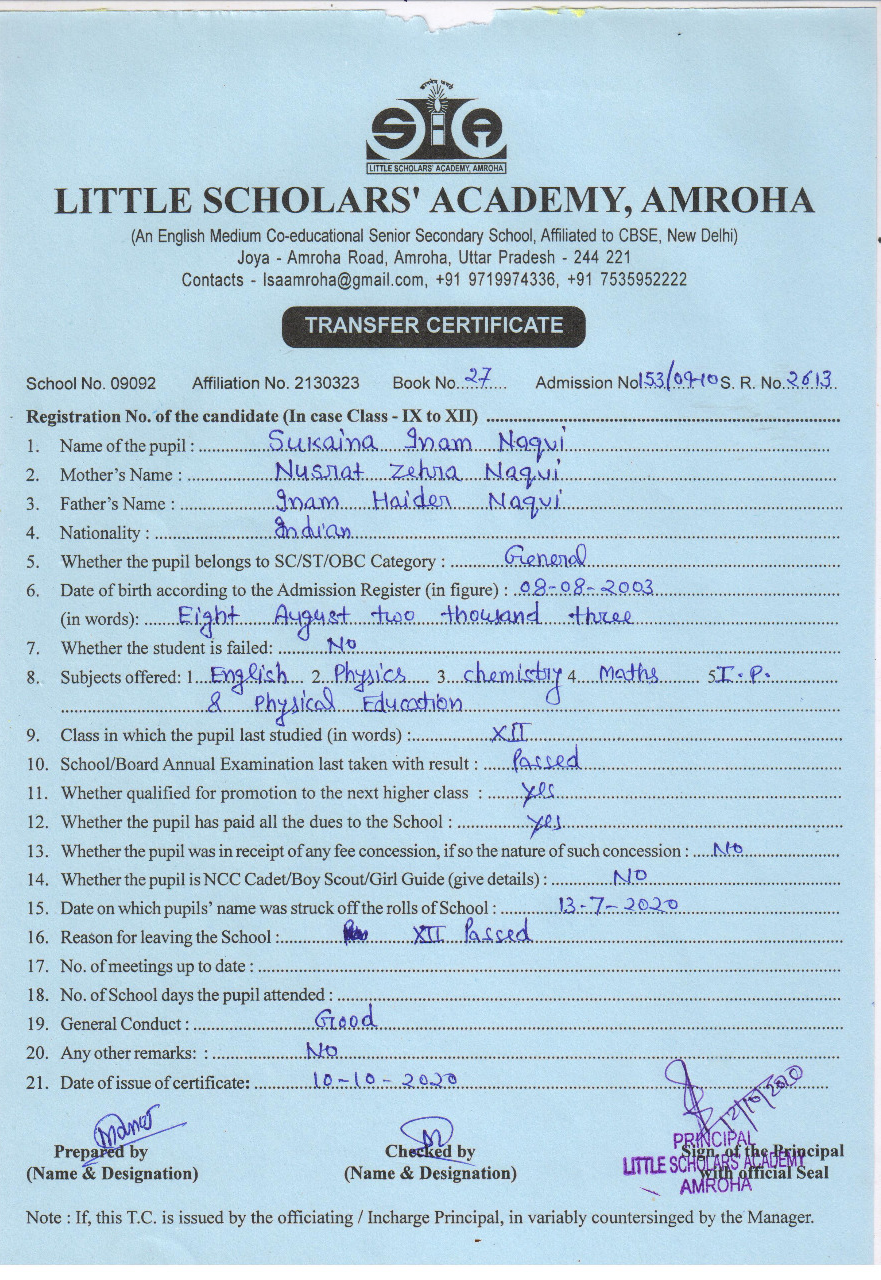 LITTLE SCHOLARS' ACADEMY, AMROHA
LITTLE SCHOLARS' ACADEMY, AMROHA
(An English Medium Co-educational Senior Secondary School, Affiliated to CBSE, New Delhi)
Joya - Amroha Road, Amroha, Uttar Pradesh - 244 221
Contacts - lsaamroha@gmail.com, +91 9719974336, +91 7535952222
TRANSFER CERTIFICATE
School No. 09092 Affiliation No. 2130323 Book No. 27 Admission No 153/09-10 S. R. No. 2613
Registration No. of the candidate (In case Class - IX to XII)
1. Name of the pupil : Sukaina Inam Naqvi
2. Mother's Name : Nusrat Zehra Naqvi
3. Father's Name : Inam Haider Naqvi
4. Nationality : Indian
5. Whether the pupil belongs to SC/ST/OBC Category : General
6. Date of birth according to the Admission Register (in figure) : 08-08-2003
(in words): Eight August two thousand three
7. Whether the student is failed: No
8. Subjects offered: 1. English 2. Physics 3. chemistry 4. Maths 5. I.P.
& Physical Education
9. Class in which the pupil last studied (in words) : XII
10. School/Board Annual Examination last taken with result : Passed
11. Whether qualified for promotion to the next higher class : yes
12. Whether the pupil has paid all the dues to the School : yes
13. Whether the pupil was in receipt of any fee concession, if so the nature of such concession : No
14. Whether the pupil is NCC Cadet/Boy Scout/Girl Guide (give details) : NO
15. Date on which pupils' name was struck off the rolls of School : 13-7-2020
16. Reason for leaving the School : XII Passed
17. No. of meetings up to date :
18. No. of School days the pupil attended :
19. General Conduct : Good
20. Any other remarks: : NO
21. Date of issue of certificate: 10-10-2020
12/10/2020
Prepared by Checked by Sign. of the Principal
(Name & Designation) (Name & Designation) with official Seal
PRINCIPAL
LITTLE SCHOLARS ACADEMY
AMROHA
Note : If, this T.C. is issued by the officiating / Incharge Principal, in variably countersinged by the Manager.